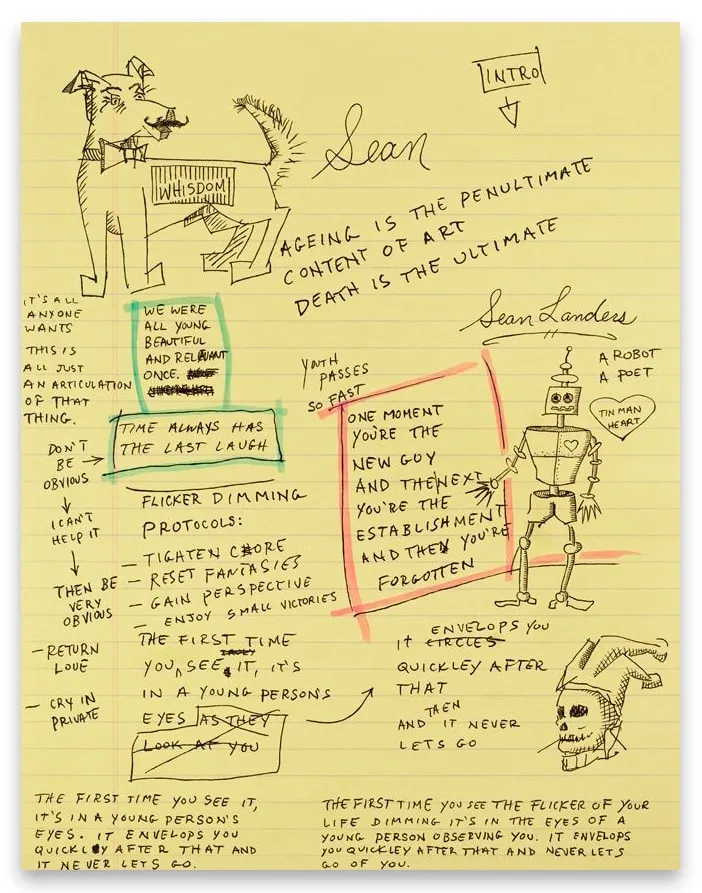 INTRO
WHISDOM
Sean
AGEING IS THE PENULTIMATE
CONTENT OF ART
DEATH IS THE ULTIMATE
IT'S ALL
ANYONE
WANTS
THIS IS
ALL JUST
AN ARTICULATION
OF THAT
THING.
WE WERE
ALL YOUNG
BEAUTIFUL
AND RELAVANT
ONCE.
TIME ALWAYS HAS
THE LAST LAUGH
DON'T
BE
OBVIOUS
I CAN'T
HELP IT
THEN BE
VERY
OBVIOUS
- RETURN
LOVE
- CRY IN
PRIVATE
FLICKER DIMMING
PROTOCOLS:
- TIGHTEN CORE
- RESET FANTASIES
- GAIN PERSPECTIVE
- ENJOY SMALL VICTORIES
Sean Landers
YOUTH
PASSES
SO FAST
ONE MOMENT
YOU'RE THE
NEW GUY
AND THE NEXT
YOU'RE THE
ESTABLISHMENT
AND THEN YOU'RE
FORGOTTEN
A ROBOT
A POET
TIN MAN
HEART
THE FIRST TIME
YOU SEE IT, IT'S
IN A YOUNG PERSON'S
EYES AS THEY
LOOK AT YOU
ENVELOPS YOU
IT CIRCLES
QUICKLEY AFTER
THAT
THEN
AND IT NEVER
LETS GO
THE FIRST TIME YOU SEE IT,
IT'S IN A YOUNG PERSON'S
EYES. IT ENVELOPS YOU
QUICKLY AFTER THAT AND
IT NEVER LETS GO.
THE FIRST TIME YOU SEE THE FLICKER OF YOUR
LIFE DIMMING IT'S IN THE EYES OF A
YOUNG PERSON OBSERVING YOU. IT ENVELOPS
YOU QUICKLEY AFTER THAT AND NEVER LETS
GO OF YOU.